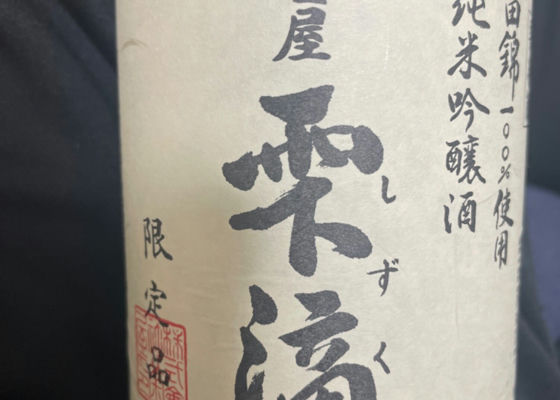 田錦一〇〇%使用
純米吟醸酒
屋
雫滴
しずく
限定品